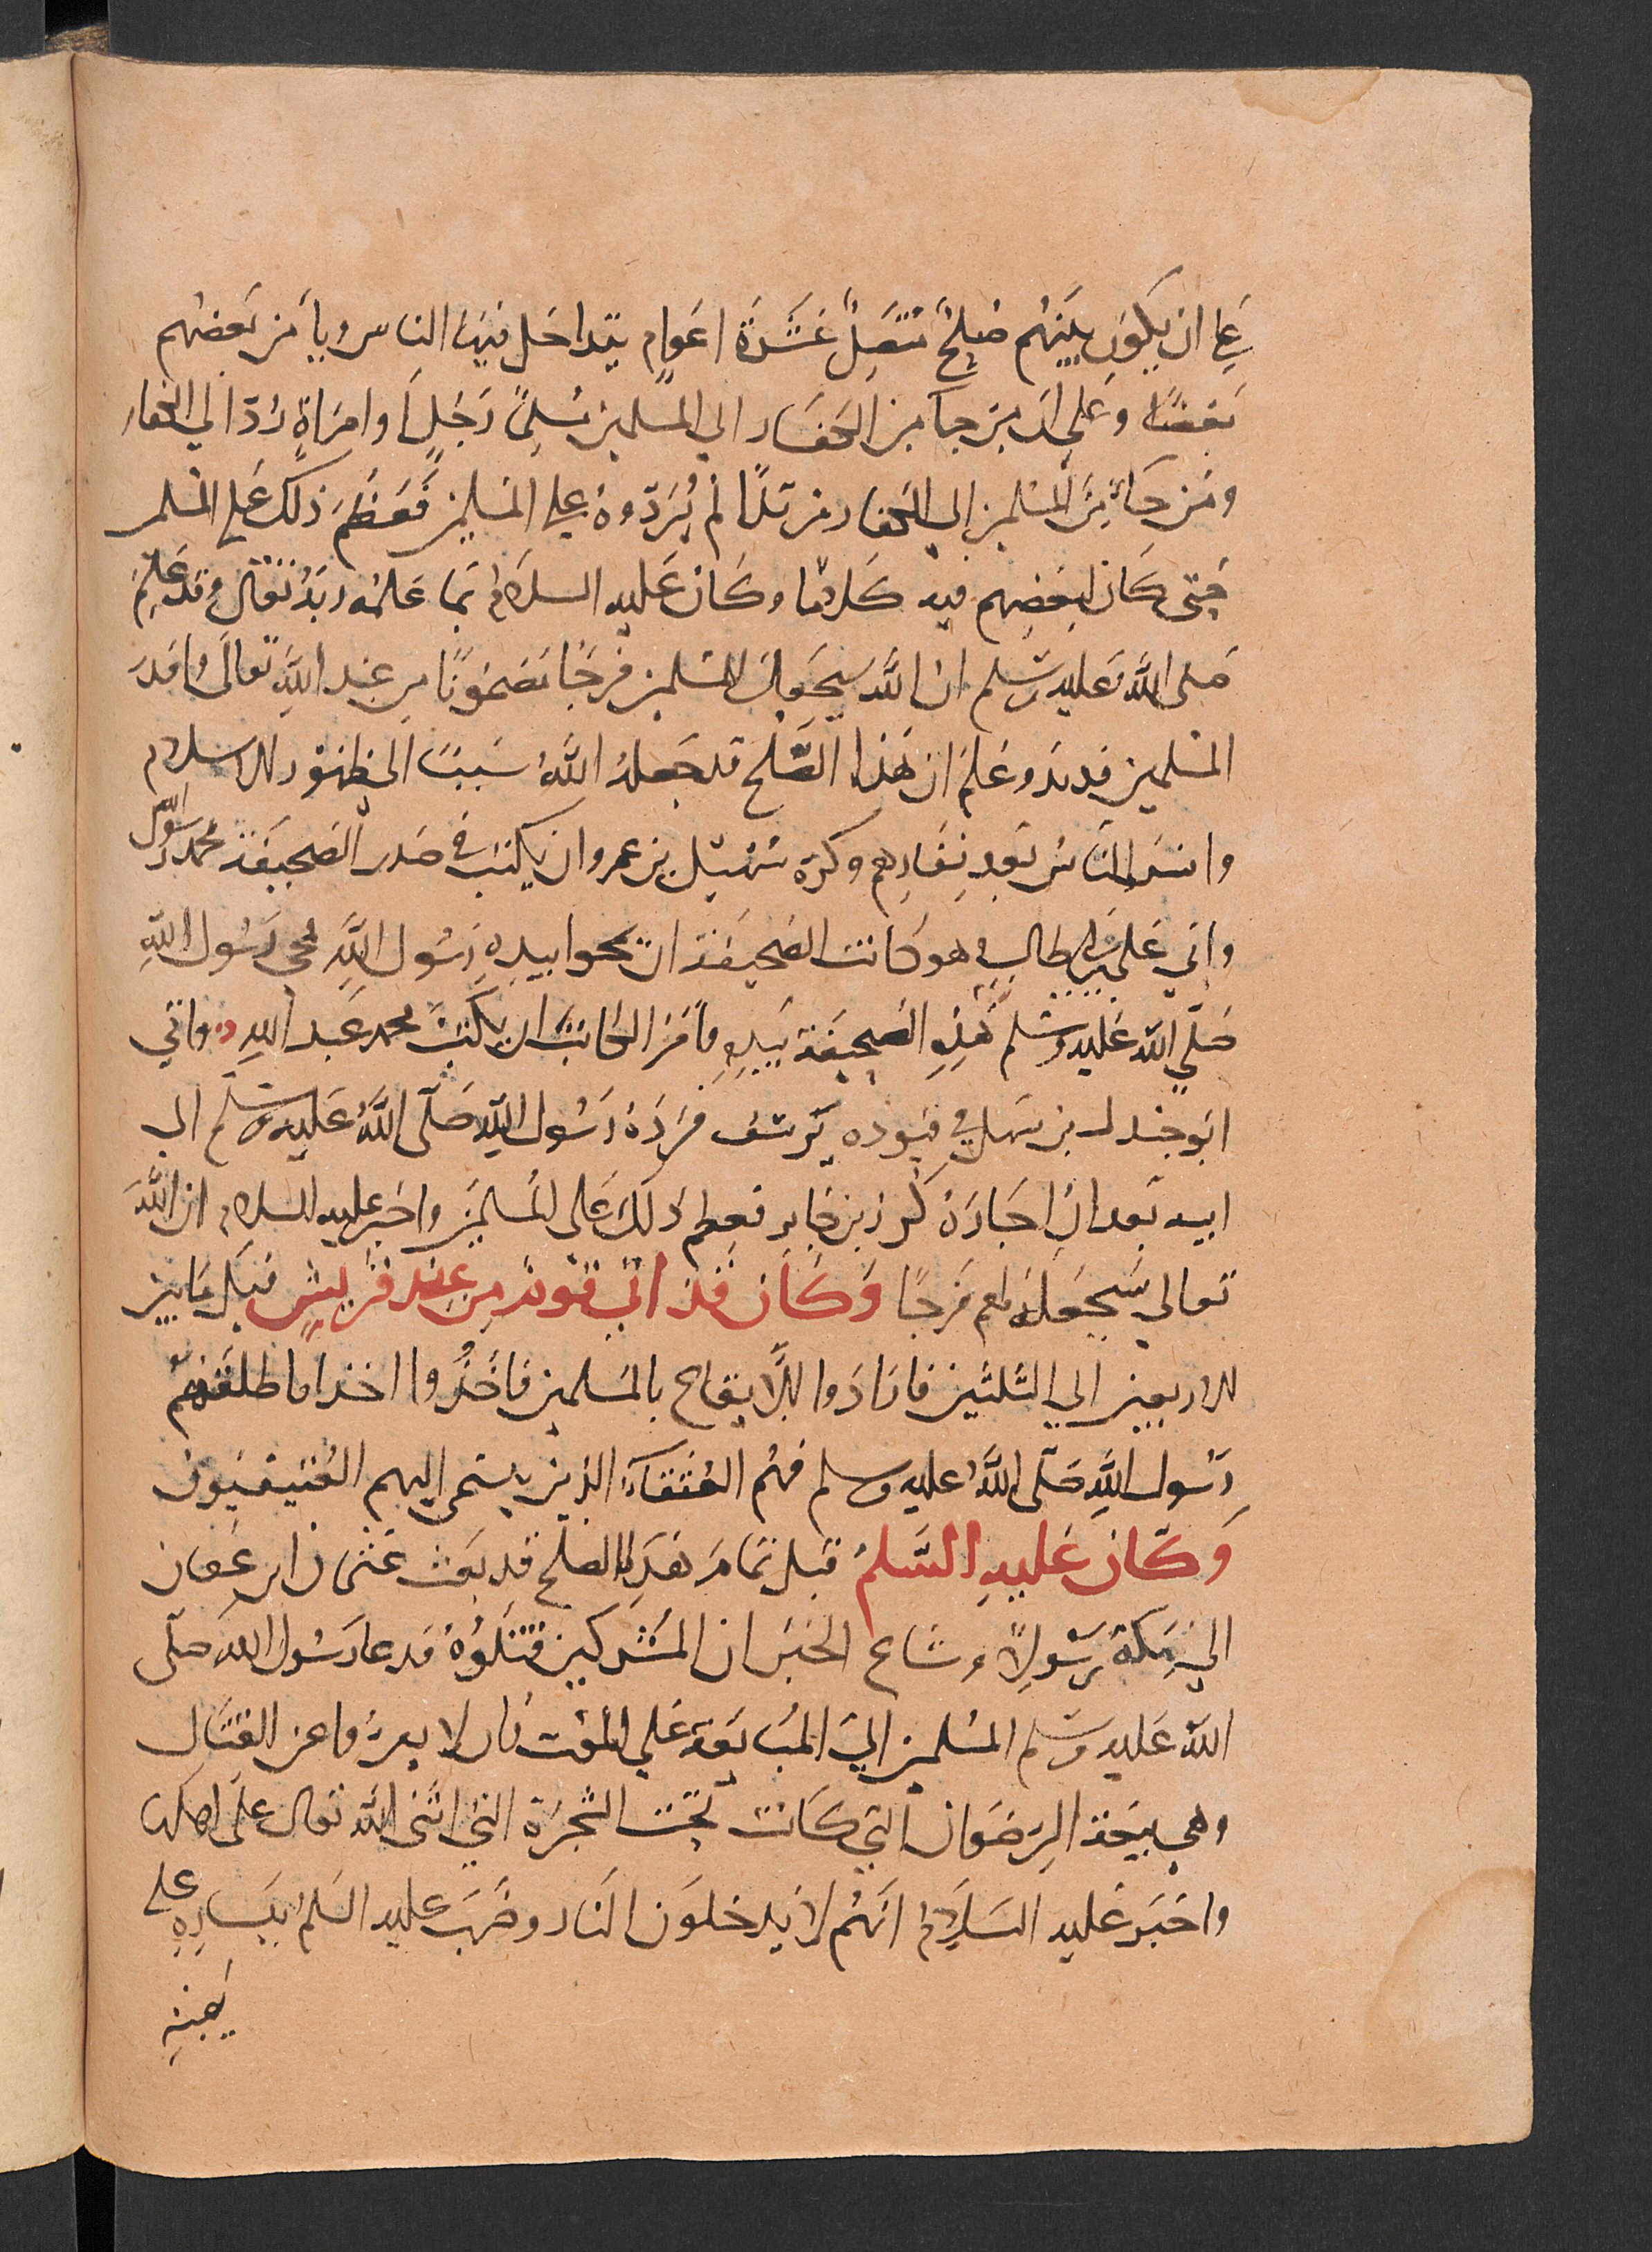 علي ان يكون بينهم صلح متصل عشرة اعوام يتداخل فيها الناس ويأمن بعضهم
بعضا وعلي ان من جا من الكفار الي المسلمين مسلمًا رجلٍ او امراةٍ ردّ الي الكفار
ومن جاء من المسلمين إلي الكفار مرتدًا لم يُردّوه علي المسلمين فعظم ذلك علي المسلمين
حتى كان لبعضهم فيه كلامًا وكان عليه السلام بما علمه ربه تعالي قد علم
صلى الله عليه وسلم ان الله سيجعل للمسلمين فرجًا مضمونًا من عند الله تعالى وانذر
المسلمين بذلك وعلم ان هذا الصلح قد جعله الله سببًا الي ظهور الاسلام
وانس الناس بعد نفارهم وكره سهيل بن عمرو ان يكتب في صدر الصحيفة محمد رسول الله
وابي علي بن ابي طالب وهو كاتب الصحيفة ان يمحوا بيده رسول الله فمحي رسول الله
صلي الله عليه وسلم هذه الصحيفة بيده وأمر الكاتب ان يكتب محمد بن عبد الله واتي
ابو جندل بن سهل في قيوده يرسف فرده رسول الله صلى الله عليه وسلم الي
ابيه بعد ان اجاره كرز بن جابر فعظم ذلك على المسلمين واخبر عليه السلام ان الله
تعالي سيجعل لهم فرجًا وكان قد اتي قوم من عند قريش قيل ما بين
الاربعين الي الثلثين فارادوا الايقاع بالمسلمين فأخذوا اخذا فاطلقهم
رسول الله صلى الله عليه وسلم فهم العتقاء الذين ينتمي إليهم العتيقيون
وكان عليه السلم قبل تمام هذا الصلح قد بعث عثمان ابن عفان
الي مكة رسولًا وشاع الخبر ان المشركين قتلوه فدعا رسول الله صلى
الله عليه وسلم المسلمين الي المبايعة علي الموت وان لا يفروا عن القتال
وهي بيعة الرضوان التي كانت تحت الشجرة التي اثنى الله تعالى على اهلها
واخبر عليه السلام انهم لا يدخلون النار وضرب عليه السلم بيساره على
يمينه